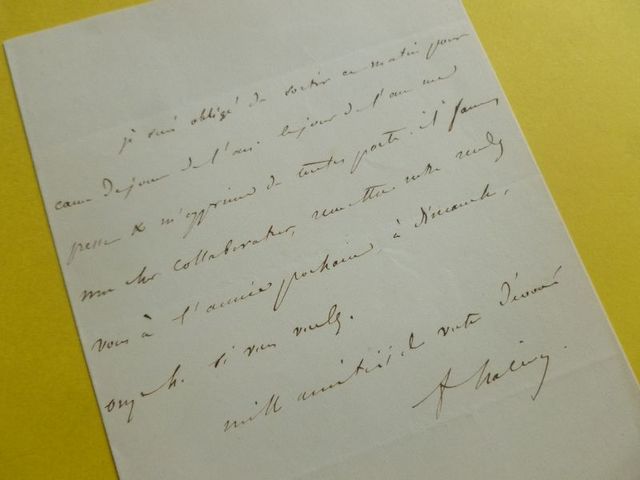 je suis obligé de sortir ce matin pour
cause de jour de l'an. le jour de l'an me
presse & m'opprime de toutes parts. il faut
mon cher collaborateur, remettre notre rendez
vous à l'année prochaine, à dimanche,
onze h. si vous voulez.
mille amitiés de votre dévoué
F Halévy.